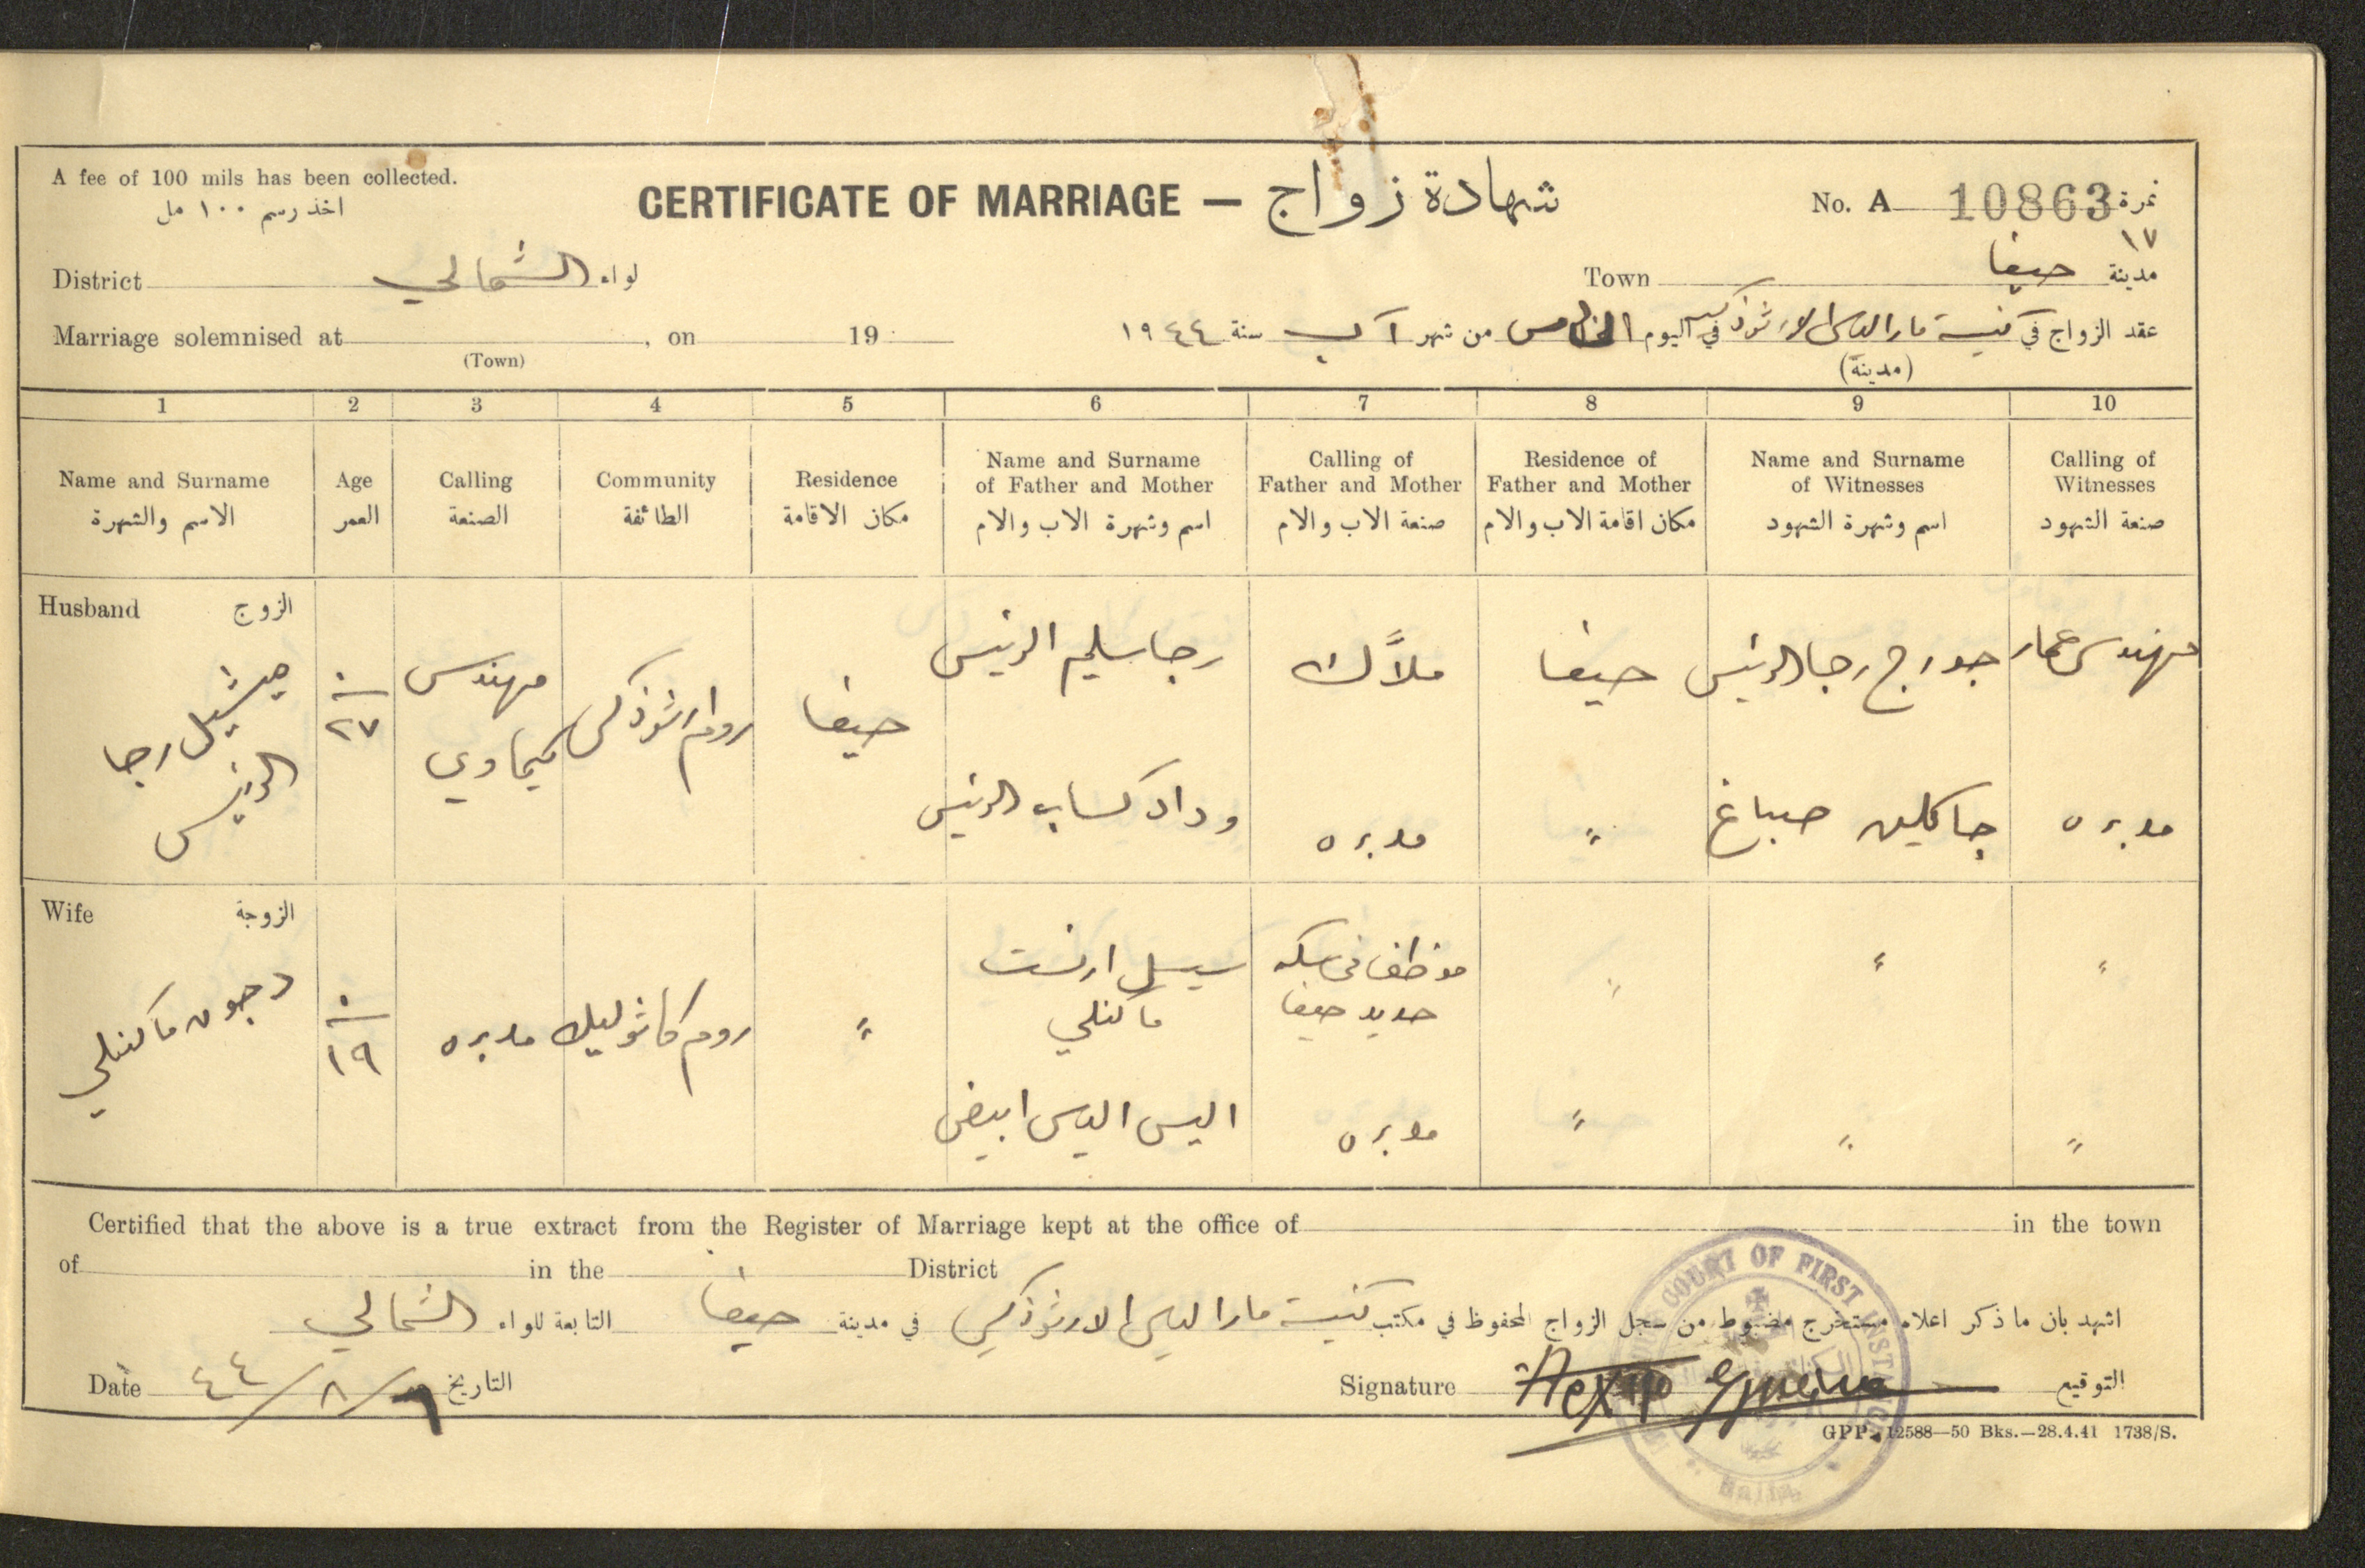 A fee of 100 mils has been collected.
اخذ رسم ١٠٠ مل
CERTIFICATE OF MARRIAGE — شهادة زواج
No. A 10863 نمرة
١٧
District الشمالي لواء
Town حيفا مدينة
Marriage solemnised at , on 19
(Town)
عقد الزواج في كنيسة مار الياس الارثوذكسية في اليوم الخامس من شهر آب سنة ١٩٤٤
(مدينة)
1 2 3 4 5 6 7 8 9 10
Name and Surname
الاسم والشهرة
Age
العمر
Calling
الصنعة
Community
الطائفة
Residence
مكان الاقامة
Name and Surname
of Father and Mother
اسم وشهرة الاب والام
Calling of
Father and Mother
صنعة الاب والام
Residence of
Father and Mother
مكان اقامة الاب والام
Name and Surname
of Witnesses
اسم وشهرة الشهود
Calling of
Witnesses
صنعة الشهود
Husband الزوج
ميشيل رجا
الريس
٢٧
مهندس
كيماوي
روم ارثوذكس
حيفا
رجا سليم الريس
وداد كساب الريس
ملاّك
مدبره
حيفا
"
جورج رجا الريس
جاكلين صباغ
مهندس عمار
مدبره
Wife الزوجة
دجون ماكنلي
١٩
مدبره
روم كاثوليك
"
سيسل ارنست
ماكنلي
اليس الياس ابيض
موظف في سكه
حديد حيفا
مدبره
"
"
"
"
"
"
Certified that the above is a true extract from the Register of Marriage kept at the office of in the town
of in the District
اشهد بان ما ذكر اعلاه مستخرج مضبوط من سجل الزواج المحفوظ في مكتب كنيسة مار الياس الارثوذكس في مدينة حيفا التابعة للواء الشمالي
Date ٩/٨/٤٤ التاريخ
Signature التوقيع
COURT OF FIRST INSTANCE
Haifa
GPP. 12588—50 Bks.—28.4.41 1738/S.